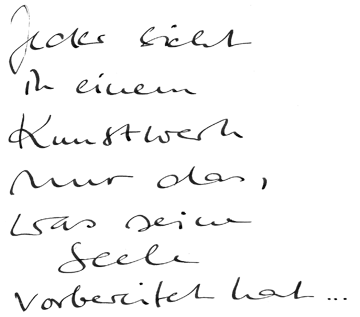 Jeder sieht
in einem
Kunstwerk
nur das,
was seine
Seele
vorbereitet hat...